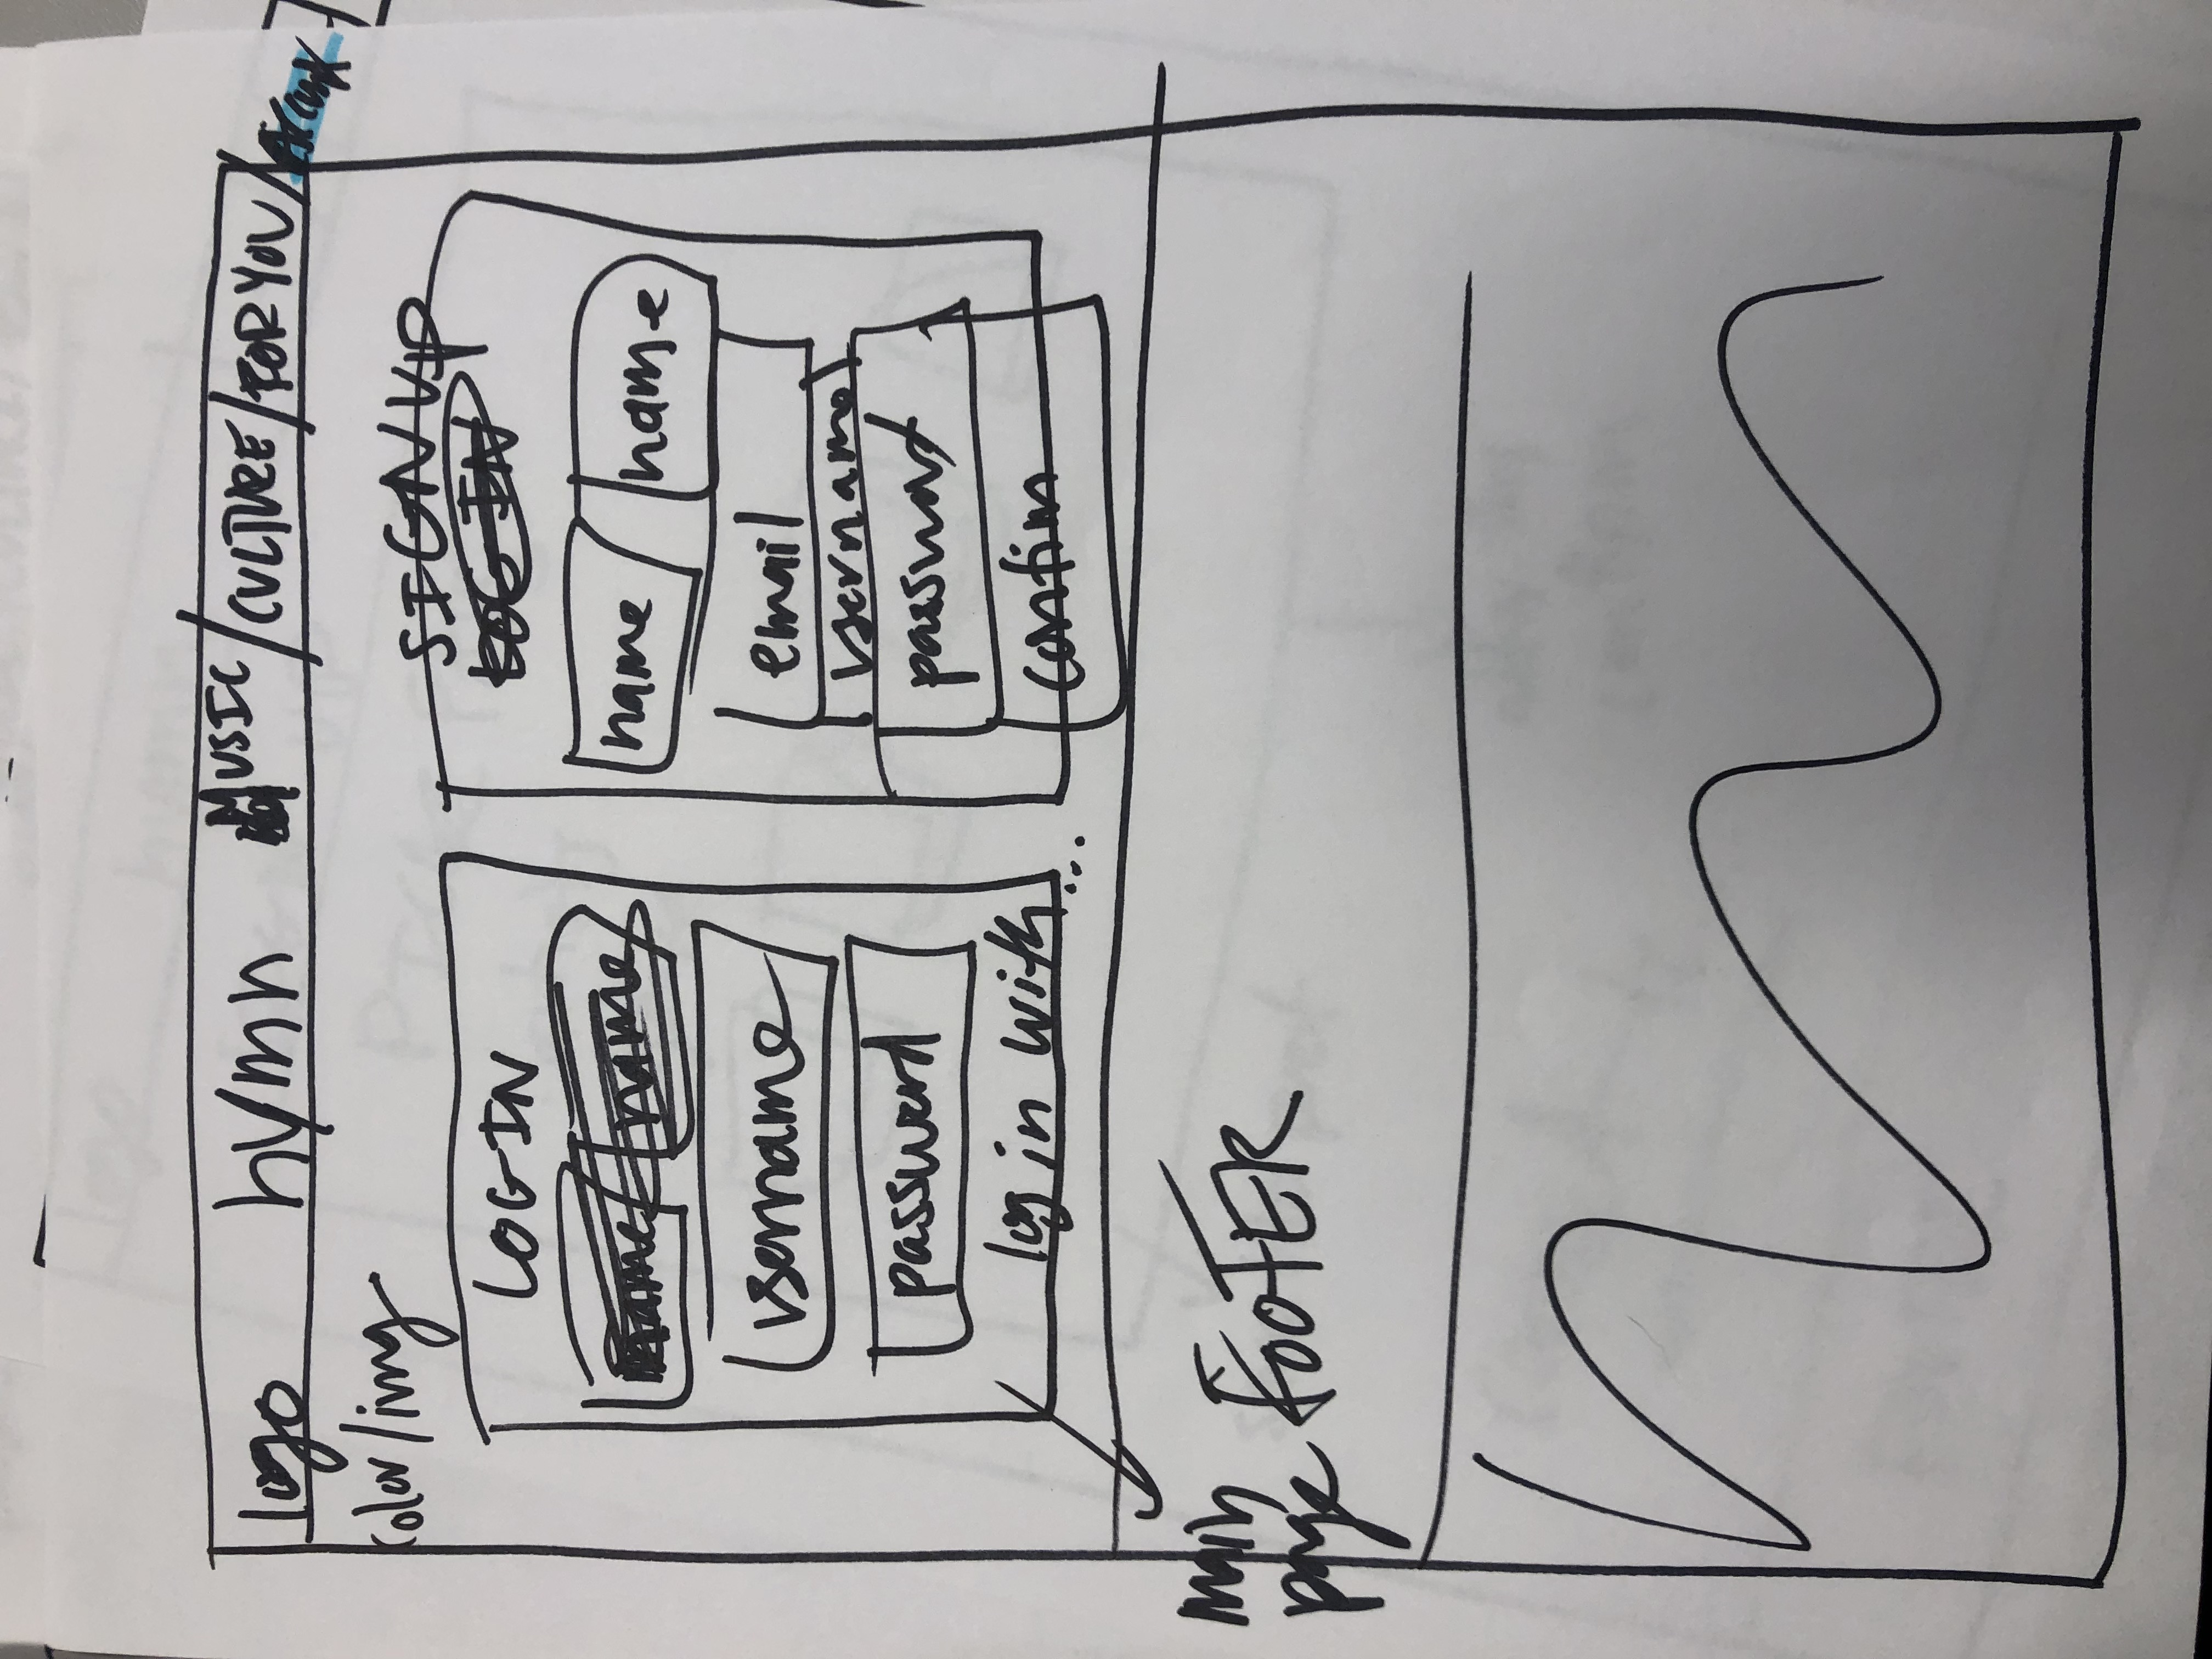 logo h/mh MUSIC / CULTURE / FOR YOU /
color/img
LOGIN
username
password
log in with...
SIGNUP
name / name
email
username
password
confirm
main
page FOOTER